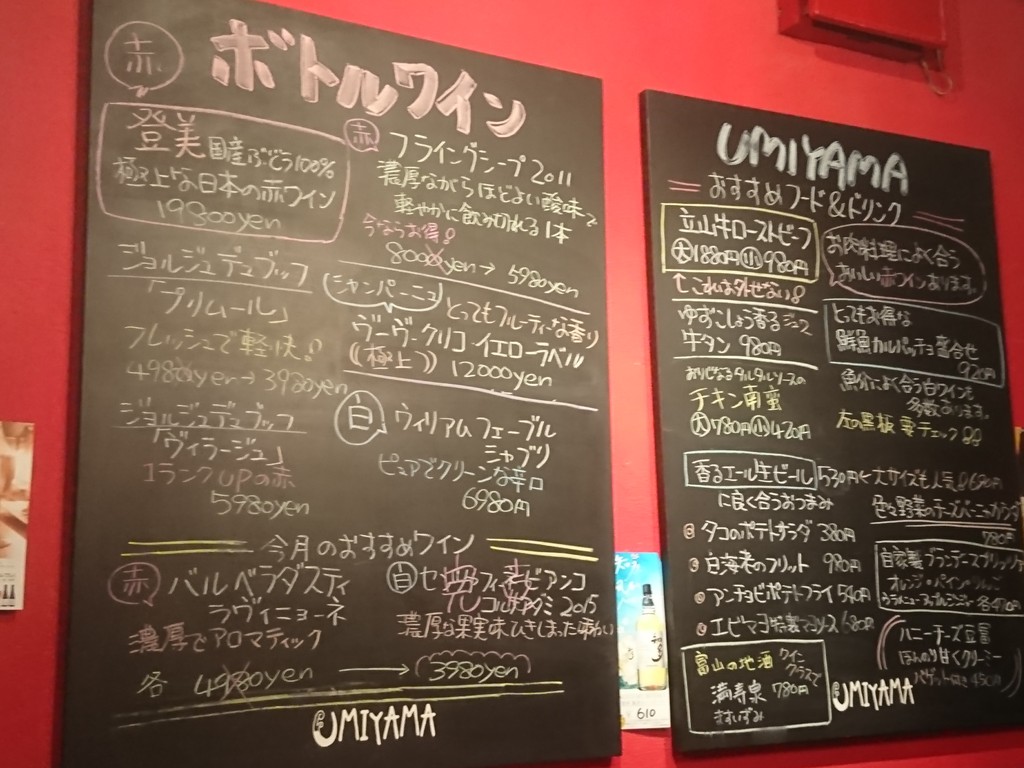 赤 ボトルワイン
登美 国産ぶどう100%
極上な日本の赤ワイン
19800yen
ジョルジュデュブッフ
「プリムール」
フレッシュで軽快!
4980yen→3980yen
ジョルジュデュブッフ
「ヴィラージュ」
1ランクupの赤
5980yen
赤 フライングシープ2011
濃厚ながらほどよい酸味で
軽やかに飲み切れる1本
今ならお得!
8000yen→5980yen
シャンパーニュ とってもフルーティな香り
ヴーヴ・クリコ イエローラベル
((極上)) 12000yen
白 ウィリアムフェーブル
シャブリ
ピュアでクリーンな辛口
6980円
今月のおすすめワイン
赤 バルベラダスティ
ラヴィニョーネ
濃厚でアロマティック
白
2015
濃厚な果実味ひきしまった味わい
各 4980yen → 3980yen
UMIYAMA
UMIYAMA
おすすめフード&ドリンク
立山牛ローストビーフ
大1880円 小980円
↑これは外せない!
ゆずこしょう香るジューシー
牛タン 980円
タルタルソースの
チキン南蛮
大780円 小420円
お肉料理によく合う
おいしい赤ワインあります。
とってもお得な
鮮魚カルパッチョ盛合せ
920円
魚介によく合う白ワインも
多数あります。
左の黒板要チェック!!
香るエール生ビール 530円←大サイズも人気!680円
に良く合うおつまみ
タコのポテトサラダ 380円
白海老のフリット 980円
アンチョビポテトフライ 540円
エビマヨ特製マヨソース 680円
色々野菜のチーズバーニャカウダ
780円
自家製
オレンジ・パイン・りんご
各490円
富山の地酒 ワイングラスで
満寿泉 780円
ますいずみ
ハニーチーズ豆腐
ほんのり甘くクリーミー
バゲット付き 450円
UMIYAMA
610